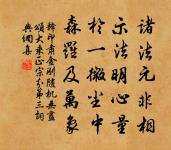 諸法元非相
示法明心量
於一微塵中
森羅及萬象
釋印肅金剛隨機無盡
頌大乘正宗分第三詞
典網集